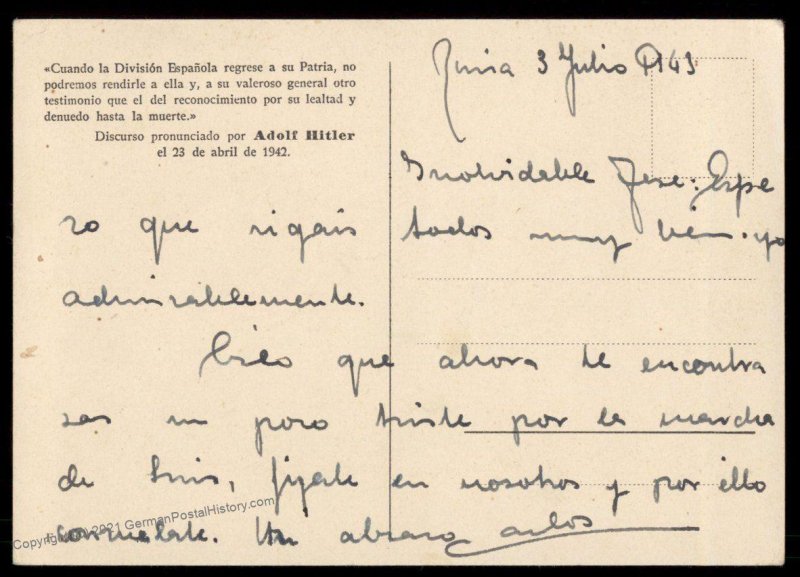 «Cuando la División Española regrese a su Patria, no
podremos rendirle a ella y, a su valeroso general otro
testimonio que el del reconocimiento por su lealtad y
denuedo hasta la muerte.»
Discurso pronunciado por Adolf Hitler
el 23 de abril de 1942.
3 Julio 1943
Inolvidable Jese: Espe
ro que sigais todos muy bien. yo
admirablemente.
Creo que ahora te encontra
ras un poco triste por la marcha
de Luis, fijate en nosotros y por ello
consuelate. Un abrazo Carlos
Copyright (c) 2021 GermanPostalHistory.com